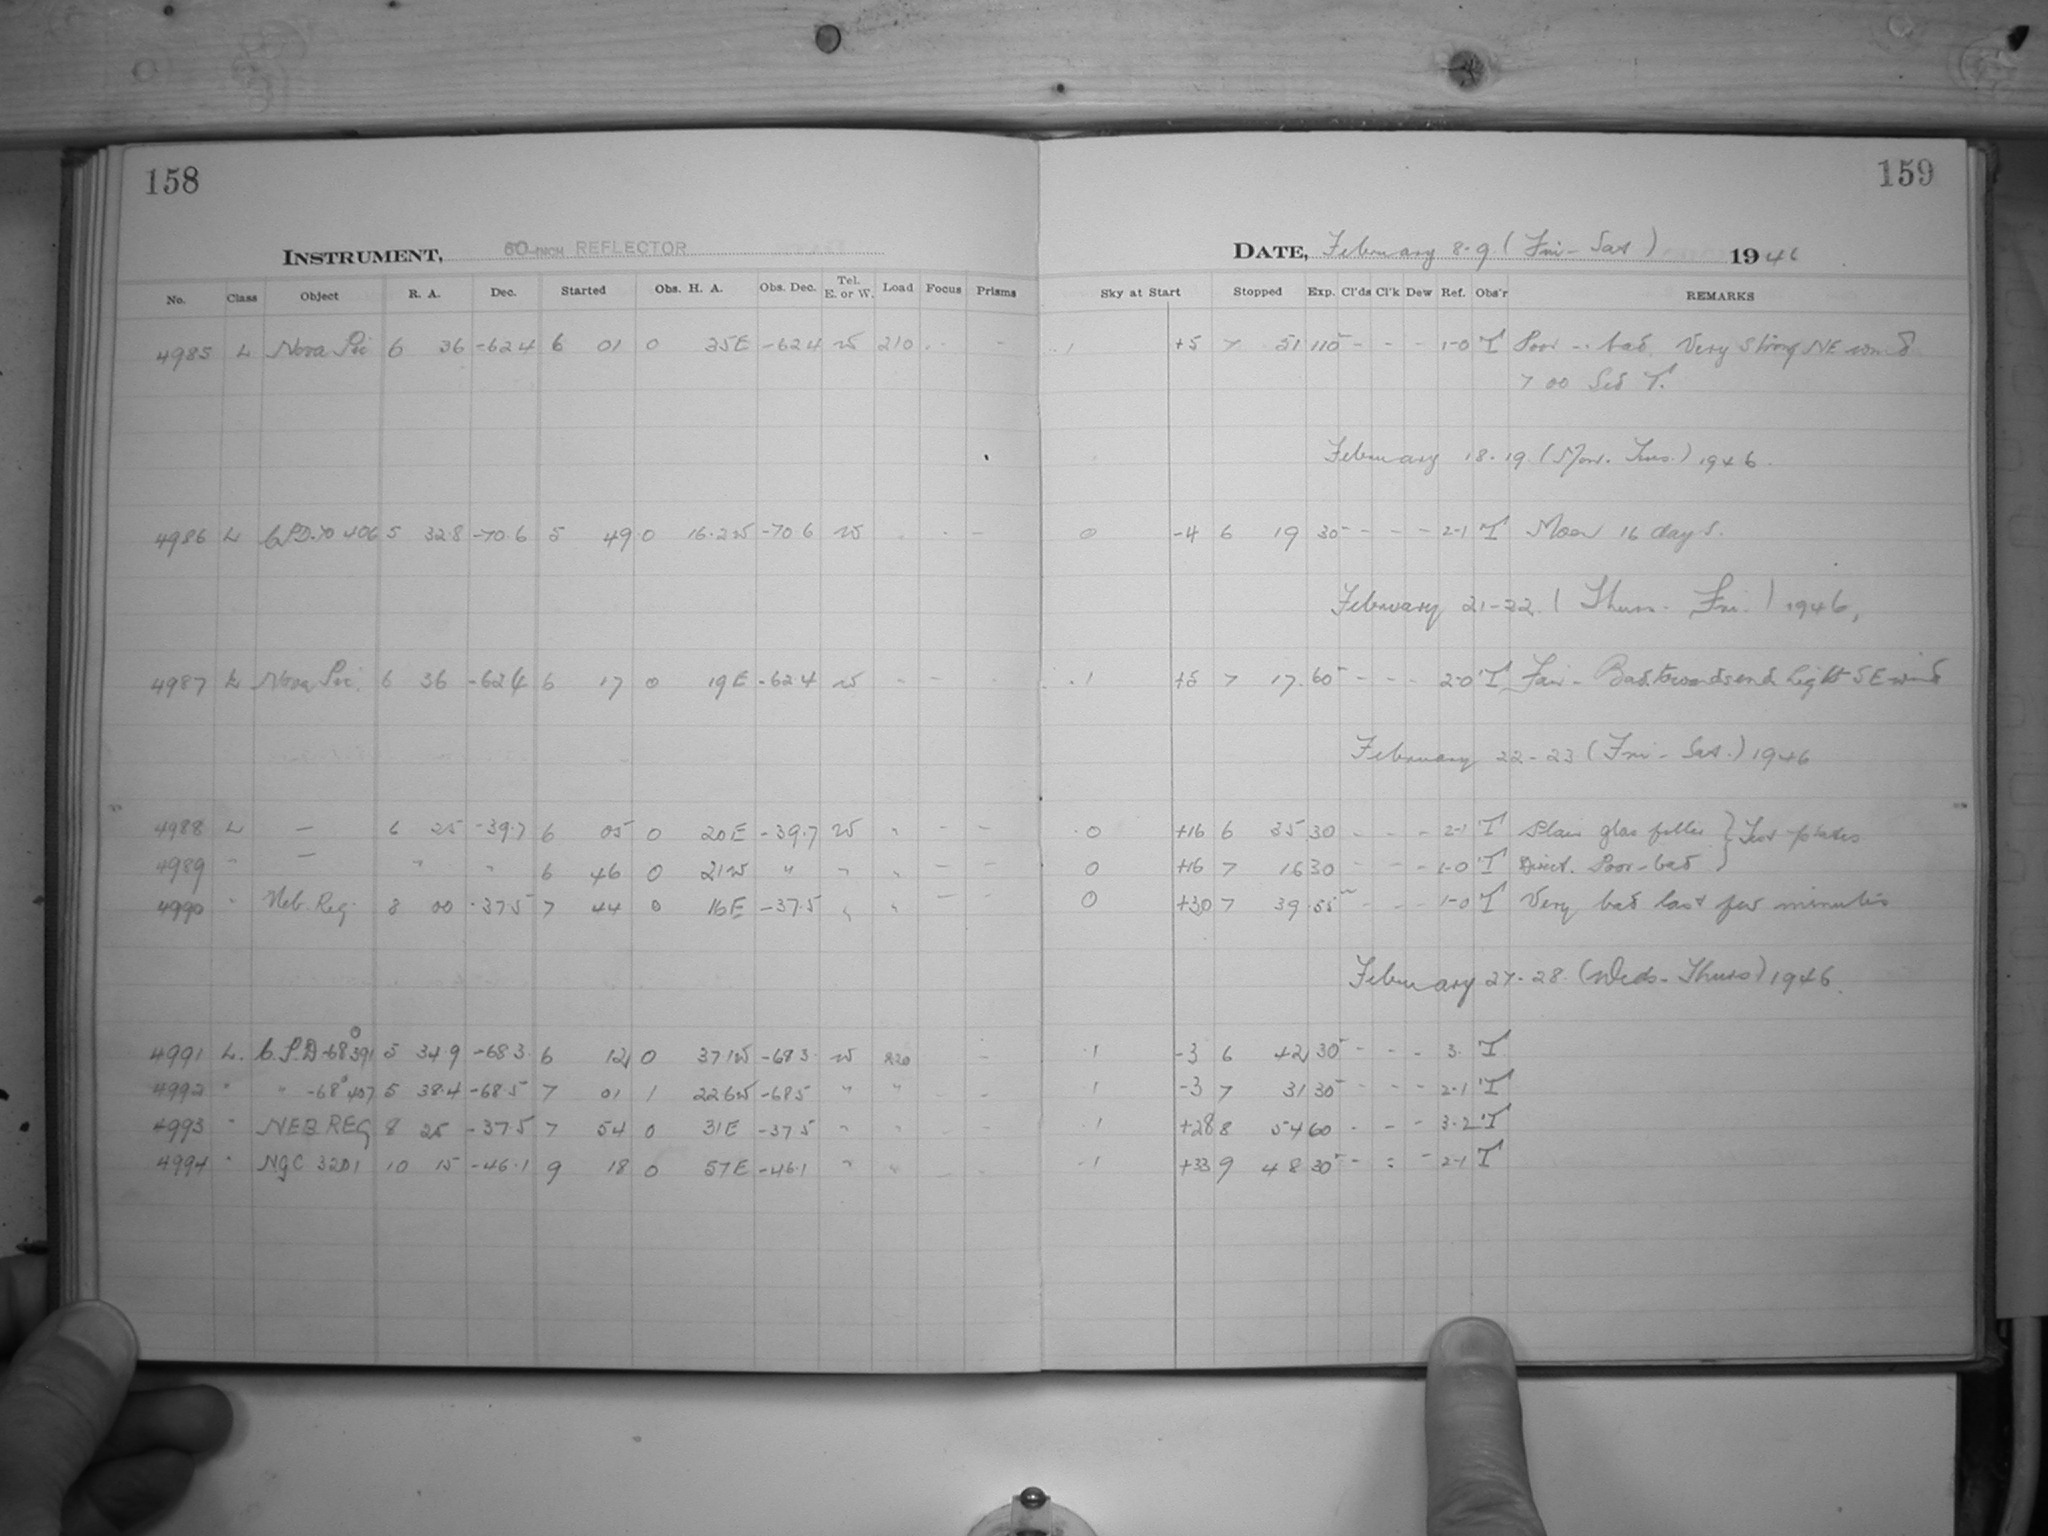 158
INSTRUMENT, 60-INCH REFLECTOR
No. Class Object R. A. Dec. Started Obs. H. A. Obs. Dec. Tel. E. or W. Load Focus Prisms
4985 L Nova Pic 6 36 -62.4 6 01 0 35E -62.4 W 210 - -
4986 L C.P.D.-70 406 5 32.8 -70.6 5 49 0 16.2W -70.6 W - -
4987 L Nova Pic. 6 36 -62.4 6 17 0 19E -62.4 W - - -
4988 L — 6 25 -39.7 6 05 0 20E -39.7 W " - -
4989 " — " " 6 46 0 21W " " " - -
4990 " Neb. Reg. 8 00 -37.5 7 44 0 16E -37.5 " " - -
4991 L. C.P.D -68° 391 5 34.9 -68.3 6 12 0 37.1W -68.3 W 220 -
4992 " " -68° 407 5 38.4 -68.5 7 01 1 22.6W -68.5 " " - -
4993 " NEB REG 8 25 -37.5 7 54 0 31E -37.5 " " - -
4994 " NGC 3201 10 15 -46.1 9 18 0 57E -46.1 " " - -
159
DATE, February 8-9 (Fri - Sat) 1946
Sky at Start Stopped Exp. Cl'ds Cl'k Dew Ref. Obs'r REMARKS
1 +5 7 51 110 - - - 1-0 T Poor - bad. Very strong NE wind
7 00 Sid T.
February 18-19 (Mon. Tues.) 1946.
0 -4 6 19 30 - - - 2-1 T Moon 16 days.
February 21-22. (Thurs. Fri.) 1946.
1 +5 7 17 60 - - - 2-0 T Fair - Bad towards end. Light SE wind
February 22-23 (Fri - Sat.) 1946
0 +16 6 35 30 - - - 2-1 T Plain glass filter } Test plates
0 +16 7 16 30 - - - 1-0 T Direct. Poor - bad }
0 +30 7 39 55 - - - 1-0 T Very bad last few minutes
February 27-28. (Weds - Thurs) 1946.
1 -3 6 42 30 - - - 3. T
1 -3 7 31 30 - - - 2-1 T
1 +28 8 54 60 - - - 3-2 T
1 +33 9 48 30 - - - 2-1 T